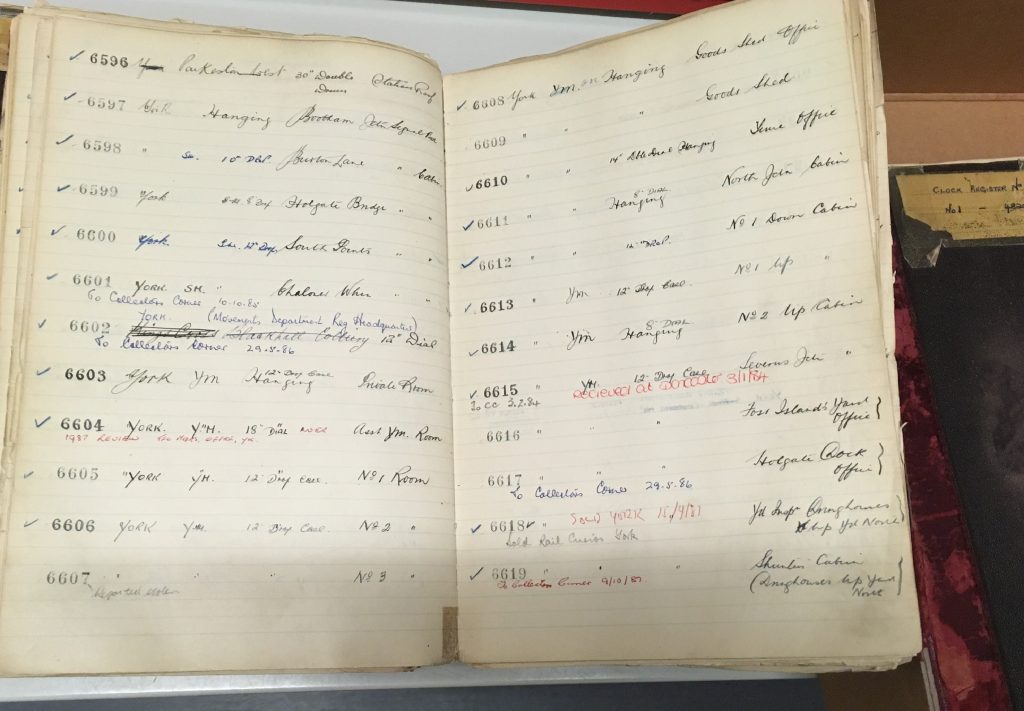 ✓ 6596 Parkeston West 30" Double Station Roof
Dowes
✓ 6597 York Hanging Bootham Jctn Signal Box
✓ 6598 " SM. 10" Drop Burton Lane " Cabin
✓ 6599 York Holgate Bridge " "
✓ 6600 York South Points " "
✓ 6601 YORK SM. " Chaloner Whin " "
To Collectors Corner 10.10.85
YORK. (Movements Department Reg Headquarters)
✓ 6602 12" Dial
To Collectors Corner 29.5.86
12" Drop Case
✓ 6603 York YM Hanging Private Room
✓ 6604 YORK. Y"M. 18" Dial Asst Ym. Room
1987 REVIEW
✓ 6605 "YORK YM. 12" Drop Case. No 1 Room
✓ 6606 YORK YM. 12" Drop Case. No 2 "
6607 " " " No 3 "
Reported stolen
✓ 6608 York Ym. on Hanging Goods Shed Office
6609 " " " Goods Shed
✓ 6610 " " 14" Dble Dial Hanging Time Office
8" DIAL
✓ 6611 " " Hanging North Jctn Cabin
✓ 6612 " " 12" DROP. No 1 Down Cabin
✓ 6613 " Ym 12" Drop Case. No 1 Up "
8" DIAL
✓ 6614 " Ym Hanging No 2 Up Cabin
✓ 6615 " YM. 12" Drop Case Severus Jctn "
To CC 3.2.84 RECIEVED at DONCASTER 3/1/84
6616 " " " Foss Island's Yard
Office }
6617 " " " Holgate Dock
Office }
To Collectors Corner 29.5.86
✓ 6618 ✓ " SOLD YORK 15/9/81 Yd Inspr Dringhouses
Up Yd North }
Sold Rail Curios York
✓ 6619 " " " Shunters Cabin
To Collectors Corner 9/10/87. (Dringhouses Up Yard
North }
CLOCK REGISTER No
No 1 –